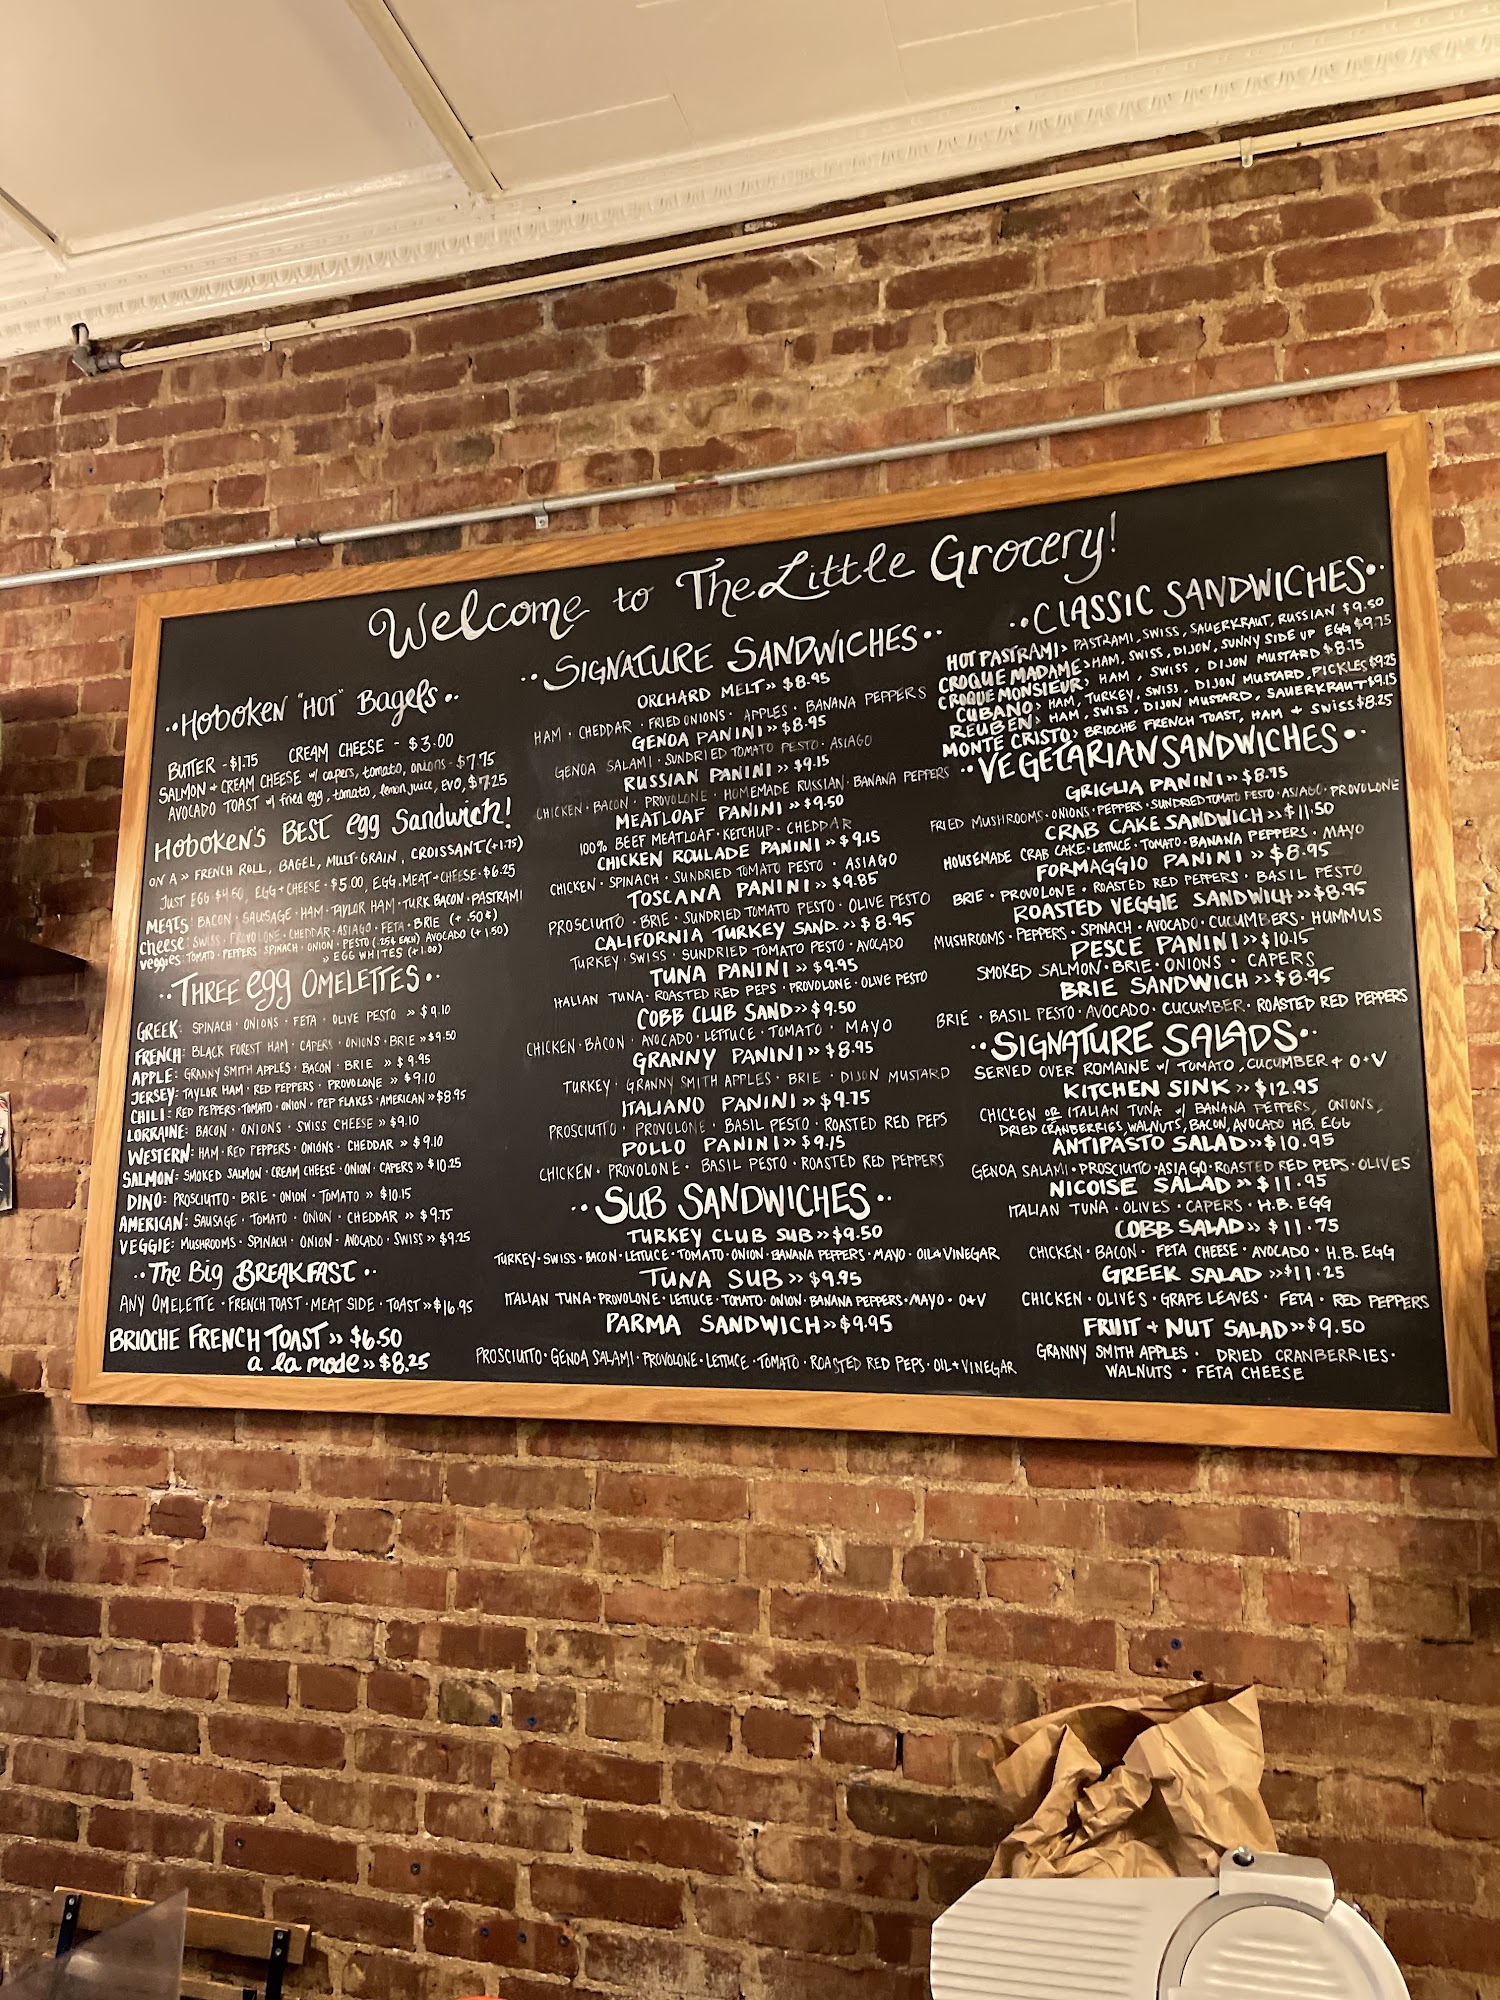 Welcome to The Little Grocery!
..Hoboken "HOT" Bagels..
BUTTER - $1.75 CREAM CHEESE - $3.00
SALMON + CREAM CHEESE w/ capers, tomato, onions - $7.75
AVOCADO TOAST w/ fried egg, tomato, lemon juice, EVO, $7.25
HOBOKEN'S BEST egg Sandwich!
ON A » FRENCH ROLL, BAGEL, MULT-GRAIN, CROISSANT (+1.75)
JUST EGG $4.50, EGG + CHEESE • $5.00, EGG, MEAT + CHEESE • $6.25
MEATS: BACON • SAUSAGE • HAM • TAYLOR HAM • TURK BACON • PASTRAMI
cheese: SWISS • PROVOLONE • CHEDDAR • ASIAGO • FETA • BRIE (+ .50¢)
veggies: TOMATO • PEPPERS • SPINACH • ONION • PESTO (.25¢ EACH) AVOCADO (+1.50)
» EGG WHITES (+1.00)
..THREE egg OMELETTES..
GREEK: SPINACH • ONIONS • FETA • OLIVE PESTO » $9.10
FRENCH: BLACK FOREST HAM • CAPERS • ONIONS • BRIE » $9.50
APPLE: GRANNY SMITH APPLES • BACON • BRIE » $9.95
JERSEY: TAYLOR HAM • RED PEPPERS • PROVOLONE » $9.10
CHILI: RED PEPPERS • TOMATO • ONION • PEP FLAKES • AMERICAN » $8.95
LORRAINE: BACON • ONIONS • SWISS CHEESE » $9.10
WESTERN: HAM • RED PEPPERS • ONIONS • CHEDDAR » $9.10
SALMON: SMOKED SALMON • CREAM CHEESE • ONION • CAPERS » $10.25
DINO: PROSCIUTTO • BRIE • ONION • TOMATO » $10.15
AMERICAN: SAUSAGE • TOMATO • ONION • CHEDDAR » $9.75
VEGGIE: MUSHROOMS • SPINACH • ONION • AVOCADO • SWISS » $9.25
..The Big BREAKFAST..
ANY OMELETTE • FRENCH TOAST • MEAT SIDE • TOAST » $16.95
BRIOCHE FRENCH TOAST » $6.50
a la mode » $8.25
..SIGNATURE SANDWICHES..
ORCHARD MELT » $8.95
HAM • CHEDDAR • FRIED ONIONS • APPLES • BANANA PEPPERS
GENOA PANINI » $8.95
GENOA SALAMI • SUNDRIED TOMATO PESTO • ASIAGO
RUSSIAN PANINI » $9.15
CHICKEN • BACON • PROVOLONE • HOMEMADE RUSSIAN • BANANA PEPPERS
MEATLOAF PANINI » $9.50
100% BEEF MEATLOAF • KETCHUP • CHEDDAR
CHICKEN ROULADE PANINI » $9.15
CHICKEN • SPINACH • SUNDRIED TOMATO PESTO • ASIAGO
TOSCANA PANINI » $9.85
PROSCIUTTO • BRIE • SUNDRIED TOMATO PESTO • OLIVE PESTO
CALIFORNIA TURKEY SAND. » $8.95
TURKEY • SWISS • SUNDRIED TOMATO PESTO • AVOCADO
TUNA PANINI » $9.95
ITALIAN TUNA • ROASTED RED PEPS • PROVOLONE • OLIVE PESTO
COBB CLUB SAND » $9.50
CHICKEN • BACON • AVOCADO • LETTUCE • TOMATO • MAYO
GRANNY PANINI » $8.95
TURKEY • GRANNY SMITH APPLES • BRIE • DIJON MUSTARD
ITALIANO PANINI » $9.75
PROSCIUTTO • PROVOLONE • BASIL PESTO • ROASTED RED PEPS
POLLO PANINI » $9.15
CHICKEN • PROVOLONE • BASIL PESTO • ROASTED RED PEPPERS
..SUB SANDWICHES..
TURKEY CLUB SUB » $9.50
TURKEY • SWISS • BACON • LETTUCE • TOMATO • ONION • BANANA PEPPERS • MAYO • OIL + VINEGAR
TUNA SUB » $9.95
ITALIAN TUNA • PROVOLONE • LETTUCE • TOMATO • ONION • BANANA PEPPERS • MAYO • O+V
PARMA SANDWICH » $9.95
PROSCIUTTO • GENOA SALAMI • PROVOLONE • LETTUCE • TOMATO • ROASTED RED PEPS • OIL + VINEGAR
..CLASSIC SANDWICHES..
HOT PASTRAMI > PASTRAMI, SWISS, SAUERKRAUT, RUSSIAN $9.50
CROQUE MADAME > HAM, SWISS, DIJON, SUNNY SIDE UP EGG $9.75
CROQUE MONSIEUR > HAM, SWISS, DIJON MUSTARD $8.75
CUBANO > HAM, TURKEY, SWISS, DIJON MUSTARD, PICKLES $9.25
REUBEN > HAM, SWISS, DIJON MUSTARD, SAUERKRAUT $9.15
MONTE CRISTO > BRIOCHE FRENCH TOAST, HAM + SWISS $8.25
..VEGETARIAN SANDWICHES..
GRIGLIA PANINI » $8.75
FRIED MUSHROOMS • ONIONS • PEPPERS • SUNDRIED TOMATO PESTO • ASIAGO • PROVOLONE
CRAB CAKE SANDWICH » $11.50
HOUSEMADE CRAB CAKE • LETTUCE • TOMATO • BANANA PEPPERS • MAYO
FORMAGGIO PANINI » $8.95
BRIE • PROVOLONE • ROASTED RED PEPPERS • BASIL PESTO
ROASTED VEGGIE SANDWICH » $8.95
MUSHROOMS • PEPPERS • SPINACH • AVOCADO • CUCUMBERS • HUMMUS
PESCE PANINI » $10.15
SMOKED SALMON • BRIE • ONIONS • CAPERS
BRIE SANDWICH » $8.95
BRIE • BASIL PESTO • AVOCADO • CUCUMBER • ROASTED RED PEPPERS
..SIGNATURE SALADS..
SERVED OVER ROMAINE w/ TOMATO, CUCUMBER + O+V
KITCHEN SINK » $12.95
CHICKEN OR ITALIAN TUNA w/ BANANA PEPPERS, ONIONS,
DRIED CRANBERRIES, WALNUTS, BACON, AVOCADO H.B. EGG
ANTIPASTO SALAD » $10.95
GENOA SALAMI • PROSCIUTTO • ASIAGO • ROASTED RED PEPS • OLIVES
NICOISE SALAD » $11.95
ITALIAN TUNA • OLIVES • CAPERS • H.B. EGG
COBB SALAD » $11.75
CHICKEN • BACON • FETA CHEESE • AVOCADO • H.B. EGG
GREEK SALAD » $11.25
CHICKEN • OLIVES • GRAPE LEAVES • FETA • RED PEPPERS
FRUIT + NUT SALAD » $9.50
GRANNY SMITH APPLES • DRIED CRANBERRIES •
WALNUTS • FETA CHEESE